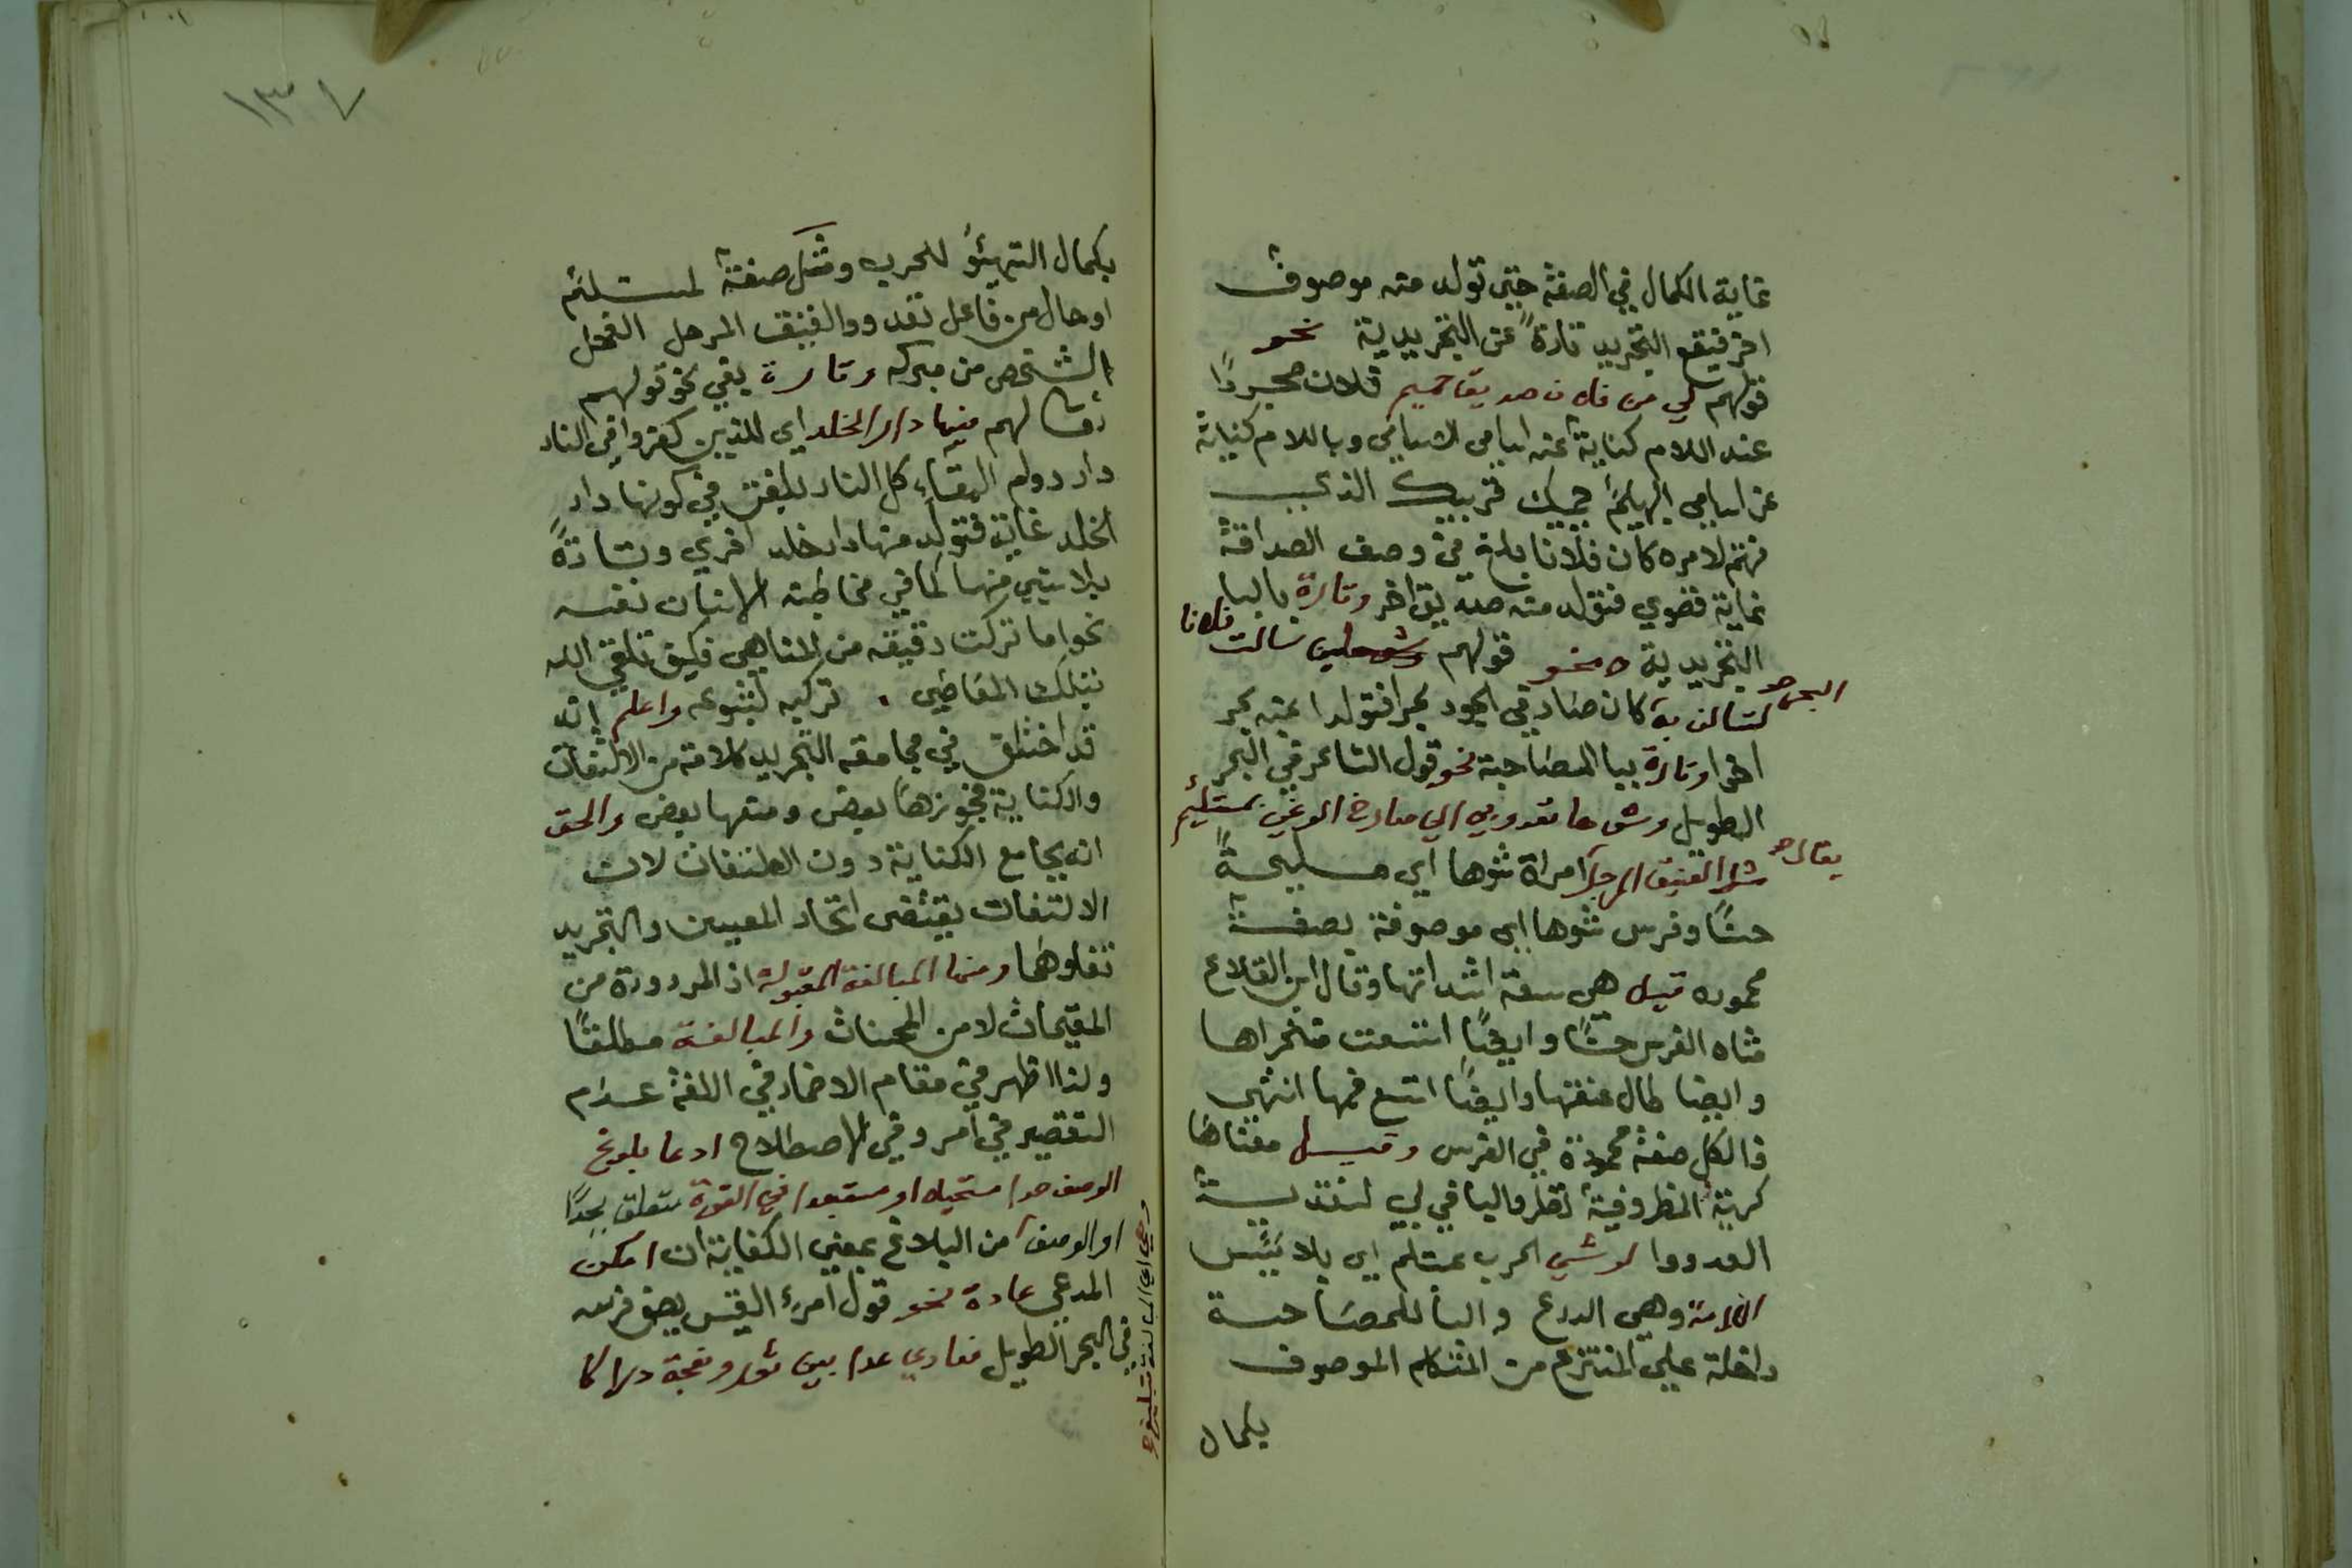 غاية الكمال في الصفة حتى تولد منه موصوف
اخر فيقع التجريد تارةً عن التجريدية نحو
قولهم لي من فلان صديق حميم فلان مجرورًا
عند اللام كناية عنه
عن قريبك الذي
يهتم لامره كان فلانا بلغ في وصف الصداقة
غاية قصوي فتولد منه صديق اخر وتارة بالبا
التجريدية نحو قولهم سالت فلانا
لتسالن به البحر كان صار في الجود بحرا فتولدا عنه بحر
اخرا وتارة ببا المصاحبة نحو قول الشاعر في البحر
الطويل وشوها تعدو بي الي صارخ الوغي بمستلئم
مثل الفنيق المرجل يقال امراة شوها اي مليحةً
حسنًا وفرس شوها اي موصوفة بصفة
محموده قيل هي سعة اشداقها وقال ابن القلاع
شاه الفرس حسنًا وايضًا اتسعت منخراها
وايضا طال عنقها وايضًا اتسع فمها انتهى
فالكل صفة محمودة في الفرس وقيل معناها
كريهة المنظر وفيه نظر والبا في بي لتعدية
العدو والوغي الحرب بمستلئم اي بلابس
اللامة وهي الدرع والبا للمصاحبة
داخلة علي المنتزع من المتكلم الموصوف
بكمال
١٣٧
بكمال التهيئؤ للحرب ومثل صفة لمستلئم
او حال من فاعل تعدو والفنيق المرحل الفحل
الشخص من مبركه وتارة بفي نحو قولهم
تعا لهم فيها دار الخلد اي للذين كفروا في النار
دار دوام البقاء كل النار بلغت في كونها دار
الخلد غاية فتولد منها دار خلد اخري وتارةً
بلا شيي منها كما في مخاطبة الانسان نفسه
نحو اما تركت دقيقة من المناهي فكيف تلقي الله
بتلك المعاصي . تركيه لتنوعه واعلم انه
قد اختلف في مجامعة التجريد كلامه من الالتفات
والكناية فجوزها بعض ومنعها بعض والحق
انه يجامع الكناية دون الالتفات لان
الالتفات يقتضي اتحاد المعنيين والتجريد
تغايرهما ومنها المبالغة المقبولة اذ المردودة من
المقبحات لا من المحسنات والمبالغة مطلقًا
ولذا اظهر في مقام الاضمار في اللغة عدم
التقصير في امر وفي الاصطلاح ادعا بلوغ
الوصف حدا مستحيلا او مستبعدا في القوة متعلق بحدًا
او الوصف من البلاغ بمعني الكفاية ان امكن
المدعي عادة نحو قول امرء القيس يصف فرسه
في البحر الطويل فعادي عدا بين ثور ونعجة دراكا
وهي اي المبالغة تبليغ